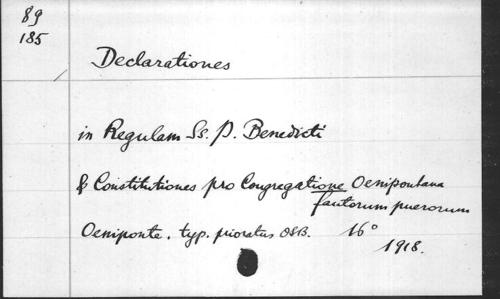 89
185
Declarationes
in Regulam Ss. P. Benedicti
& Constitutiones pro Congregatione Oenipontana
fautorum puerorum
Oeniponte. typ. prioratus OSB. 16°
1918.